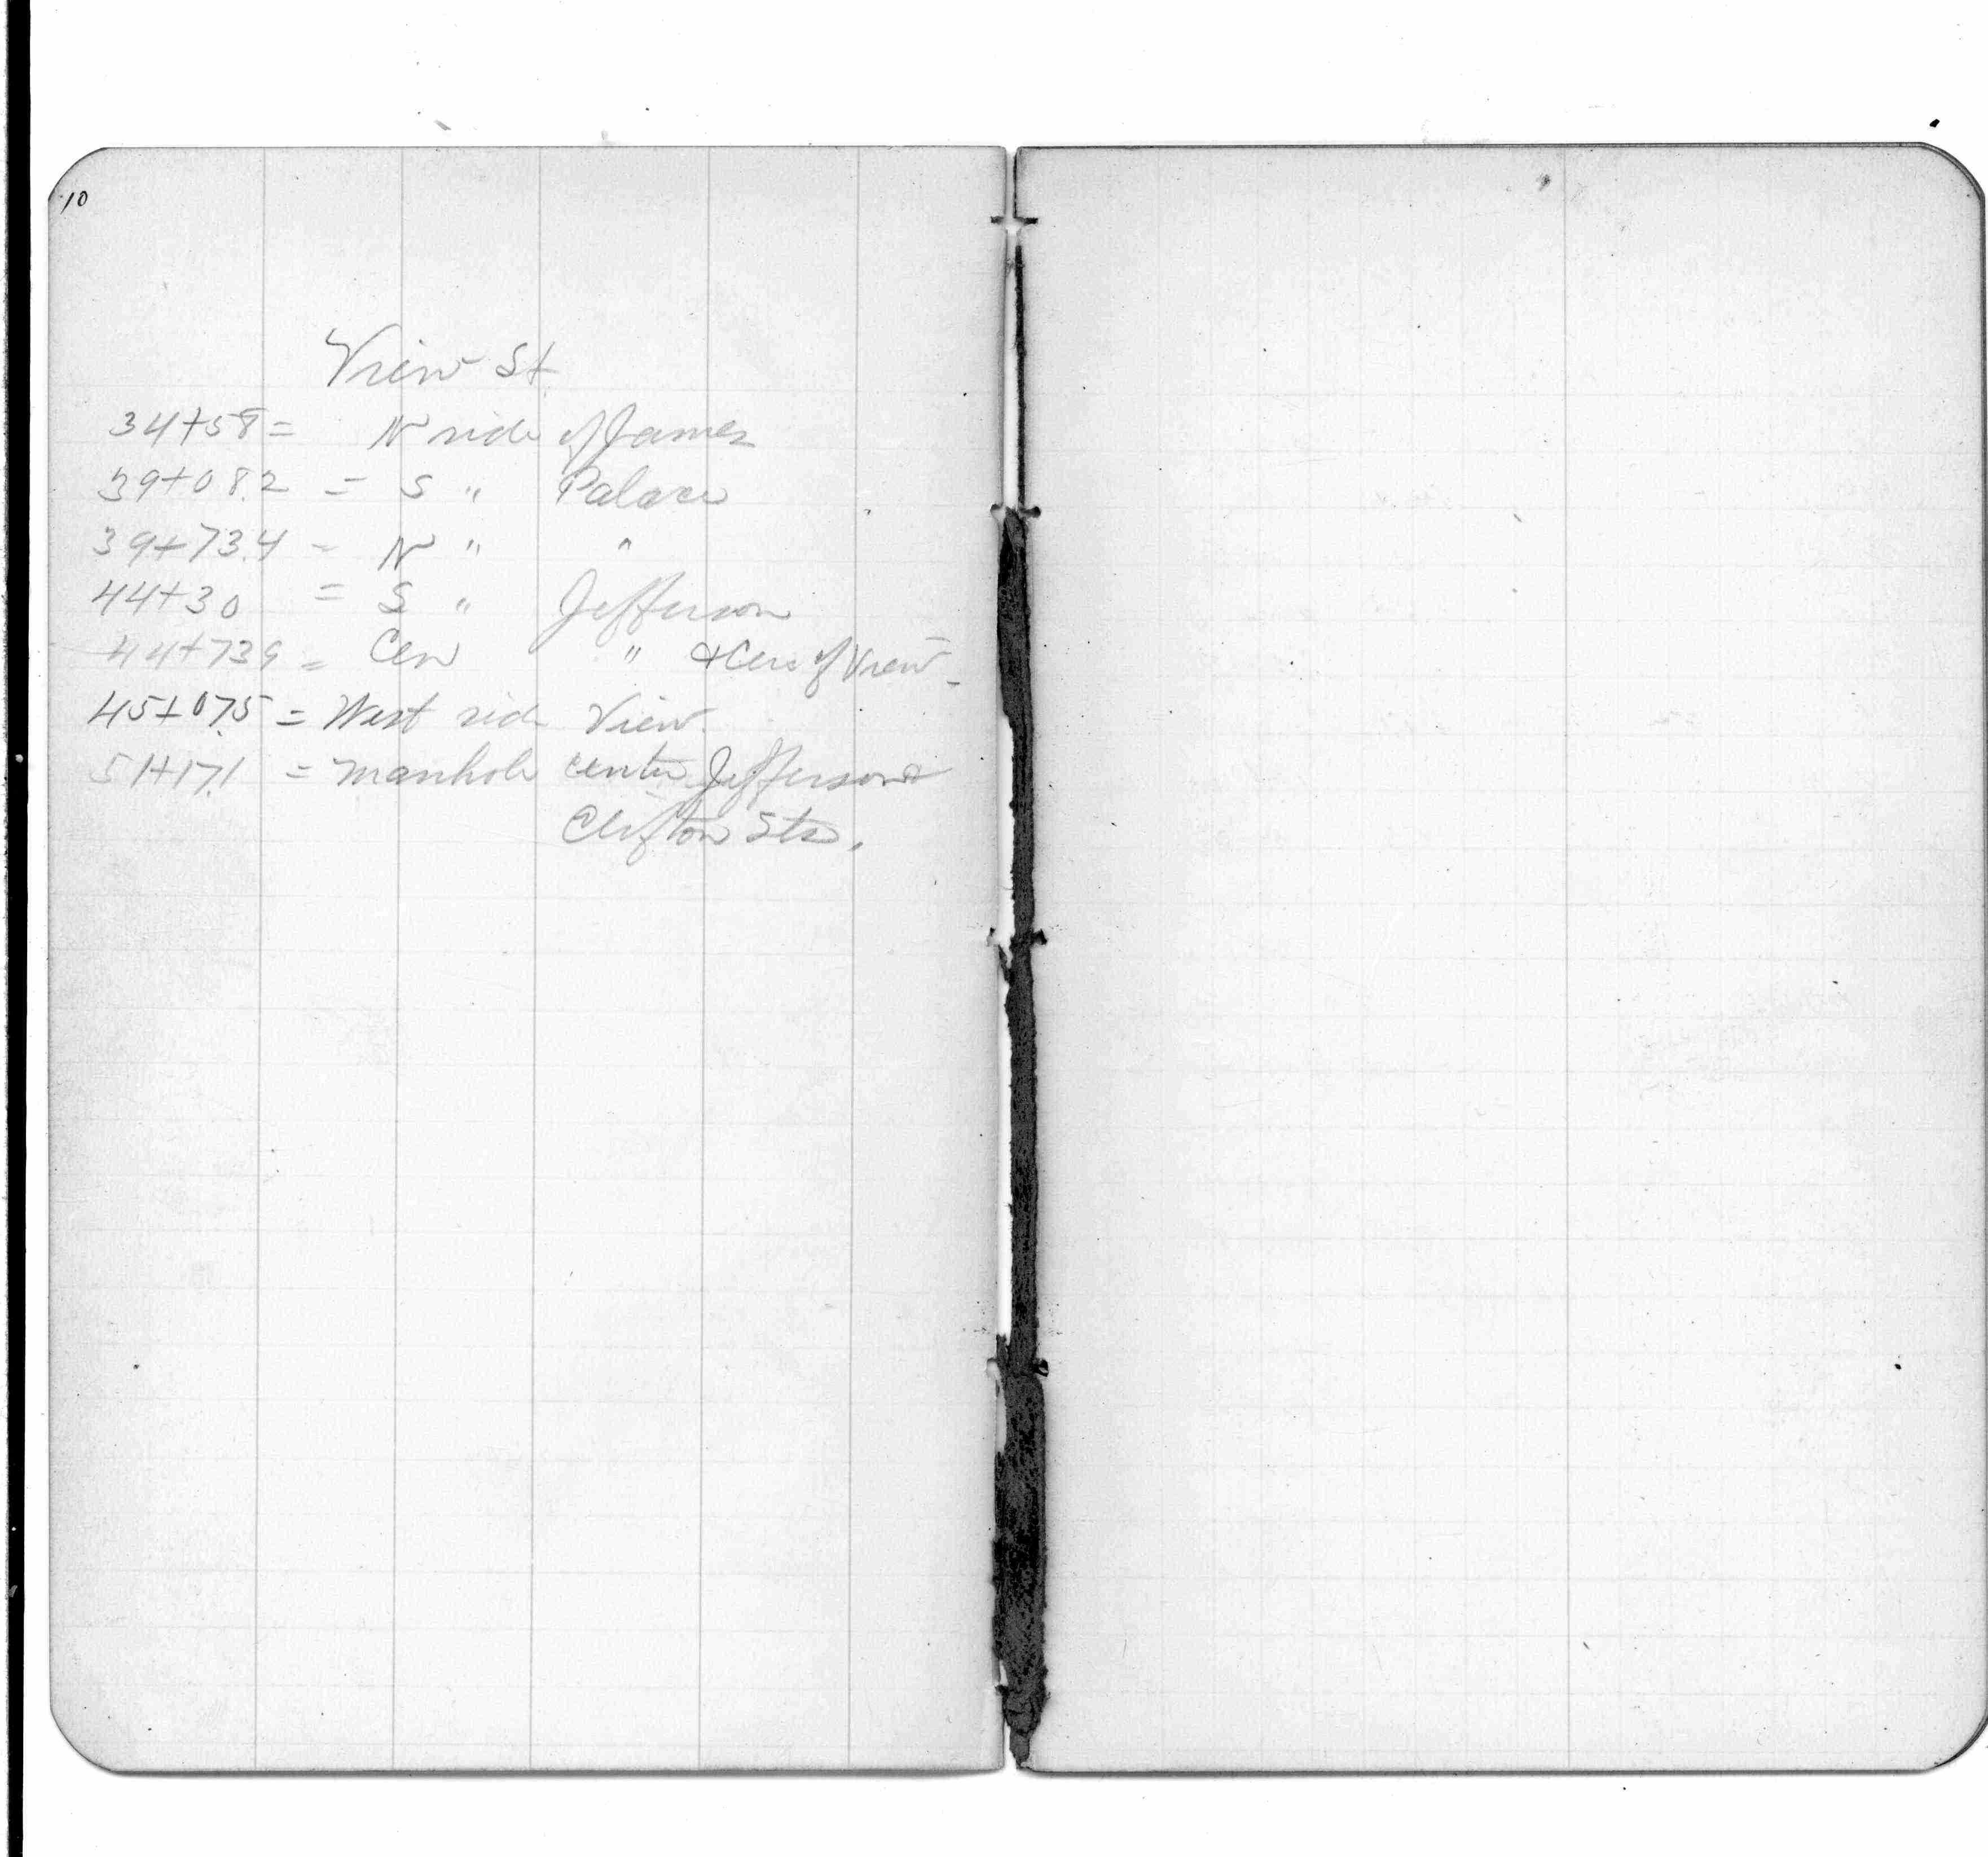 10
View St
34+58 = N side of James
39+08.2 = S " Palace
39+73.4 = N " "
44+30 = S " Jefferson
44+73.9 = Cen " & Cen of View
45+07.5 = West side View.
51+17.1 = Manhole center Jefferson &
Clifton Sts.